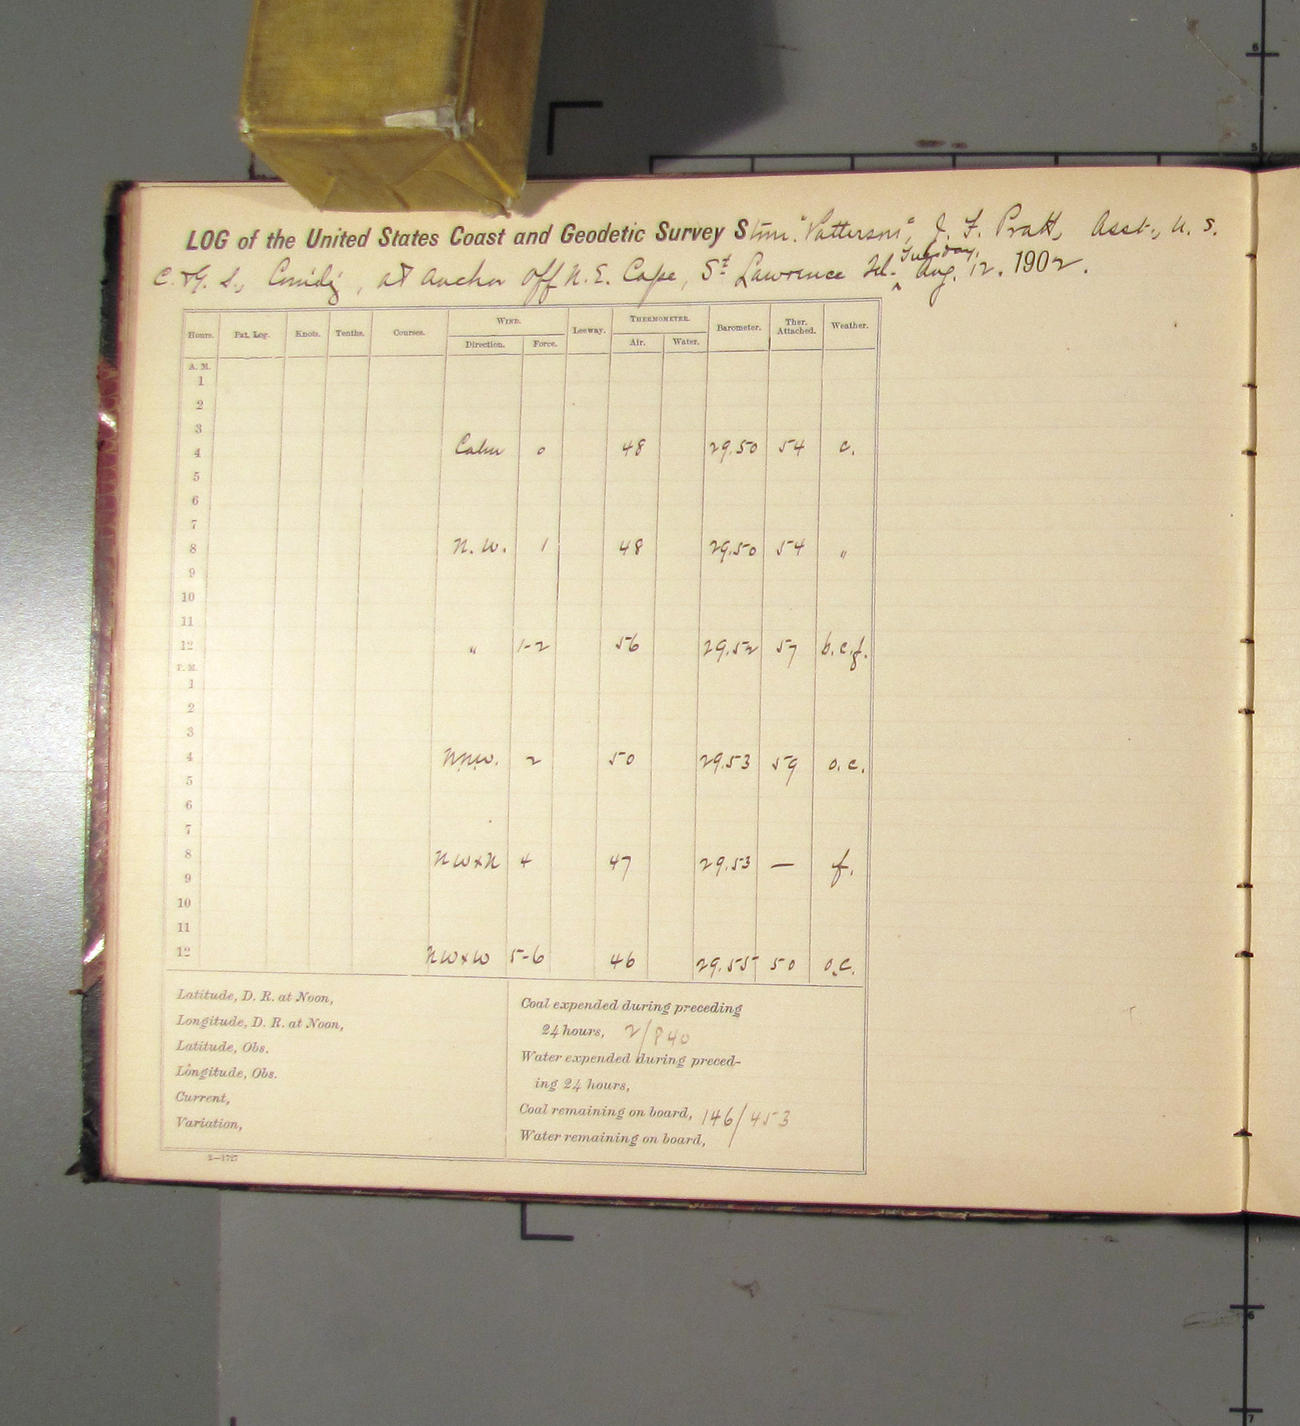 LOG of the United States Coast and Geodetic Survey Stmr. "Patterson", J. F. Pratt, Asst., U. S.
C. & G. S., Comd'g, at anchor off N. E. Cape, St Lawrence Isl. Tuesday, Aug. 12. 1902.
Hours. Pat. Log. Knots. Tenths. Courses. WIND. Leeway. THERMOMETER. Barometer. Ther. Attached. Weather.
Direction. Force. Air. Water.
A. M.
1
2
3
4 Calm 0 48 29.50 54 c.
5
6
7
8 N. W. 1 48 29.50 54 "
9
10
11
12 " 1-2 56 29.52 57 b.c.f.
P. M.
1
2
3
4 NNW. 2 50 29.53 59 o.c.
5
6
7
8 NWxN 4 47 29.53 — f.
9
10
11
12 NWxW 5-6 46 29.55 50 o.c.
Latitude, D. R. at Noon,
Longitude, D. R. at Noon,
Latitude, Obs.
Longitude, Obs.
Current,
Variation,
Coal expended during preceding
24 hours, 2/840
Water expended during preced-
ing 24 hours,
Coal remaining on board, 146/453
Water remaining on board,
3—1727
6
5
6
7